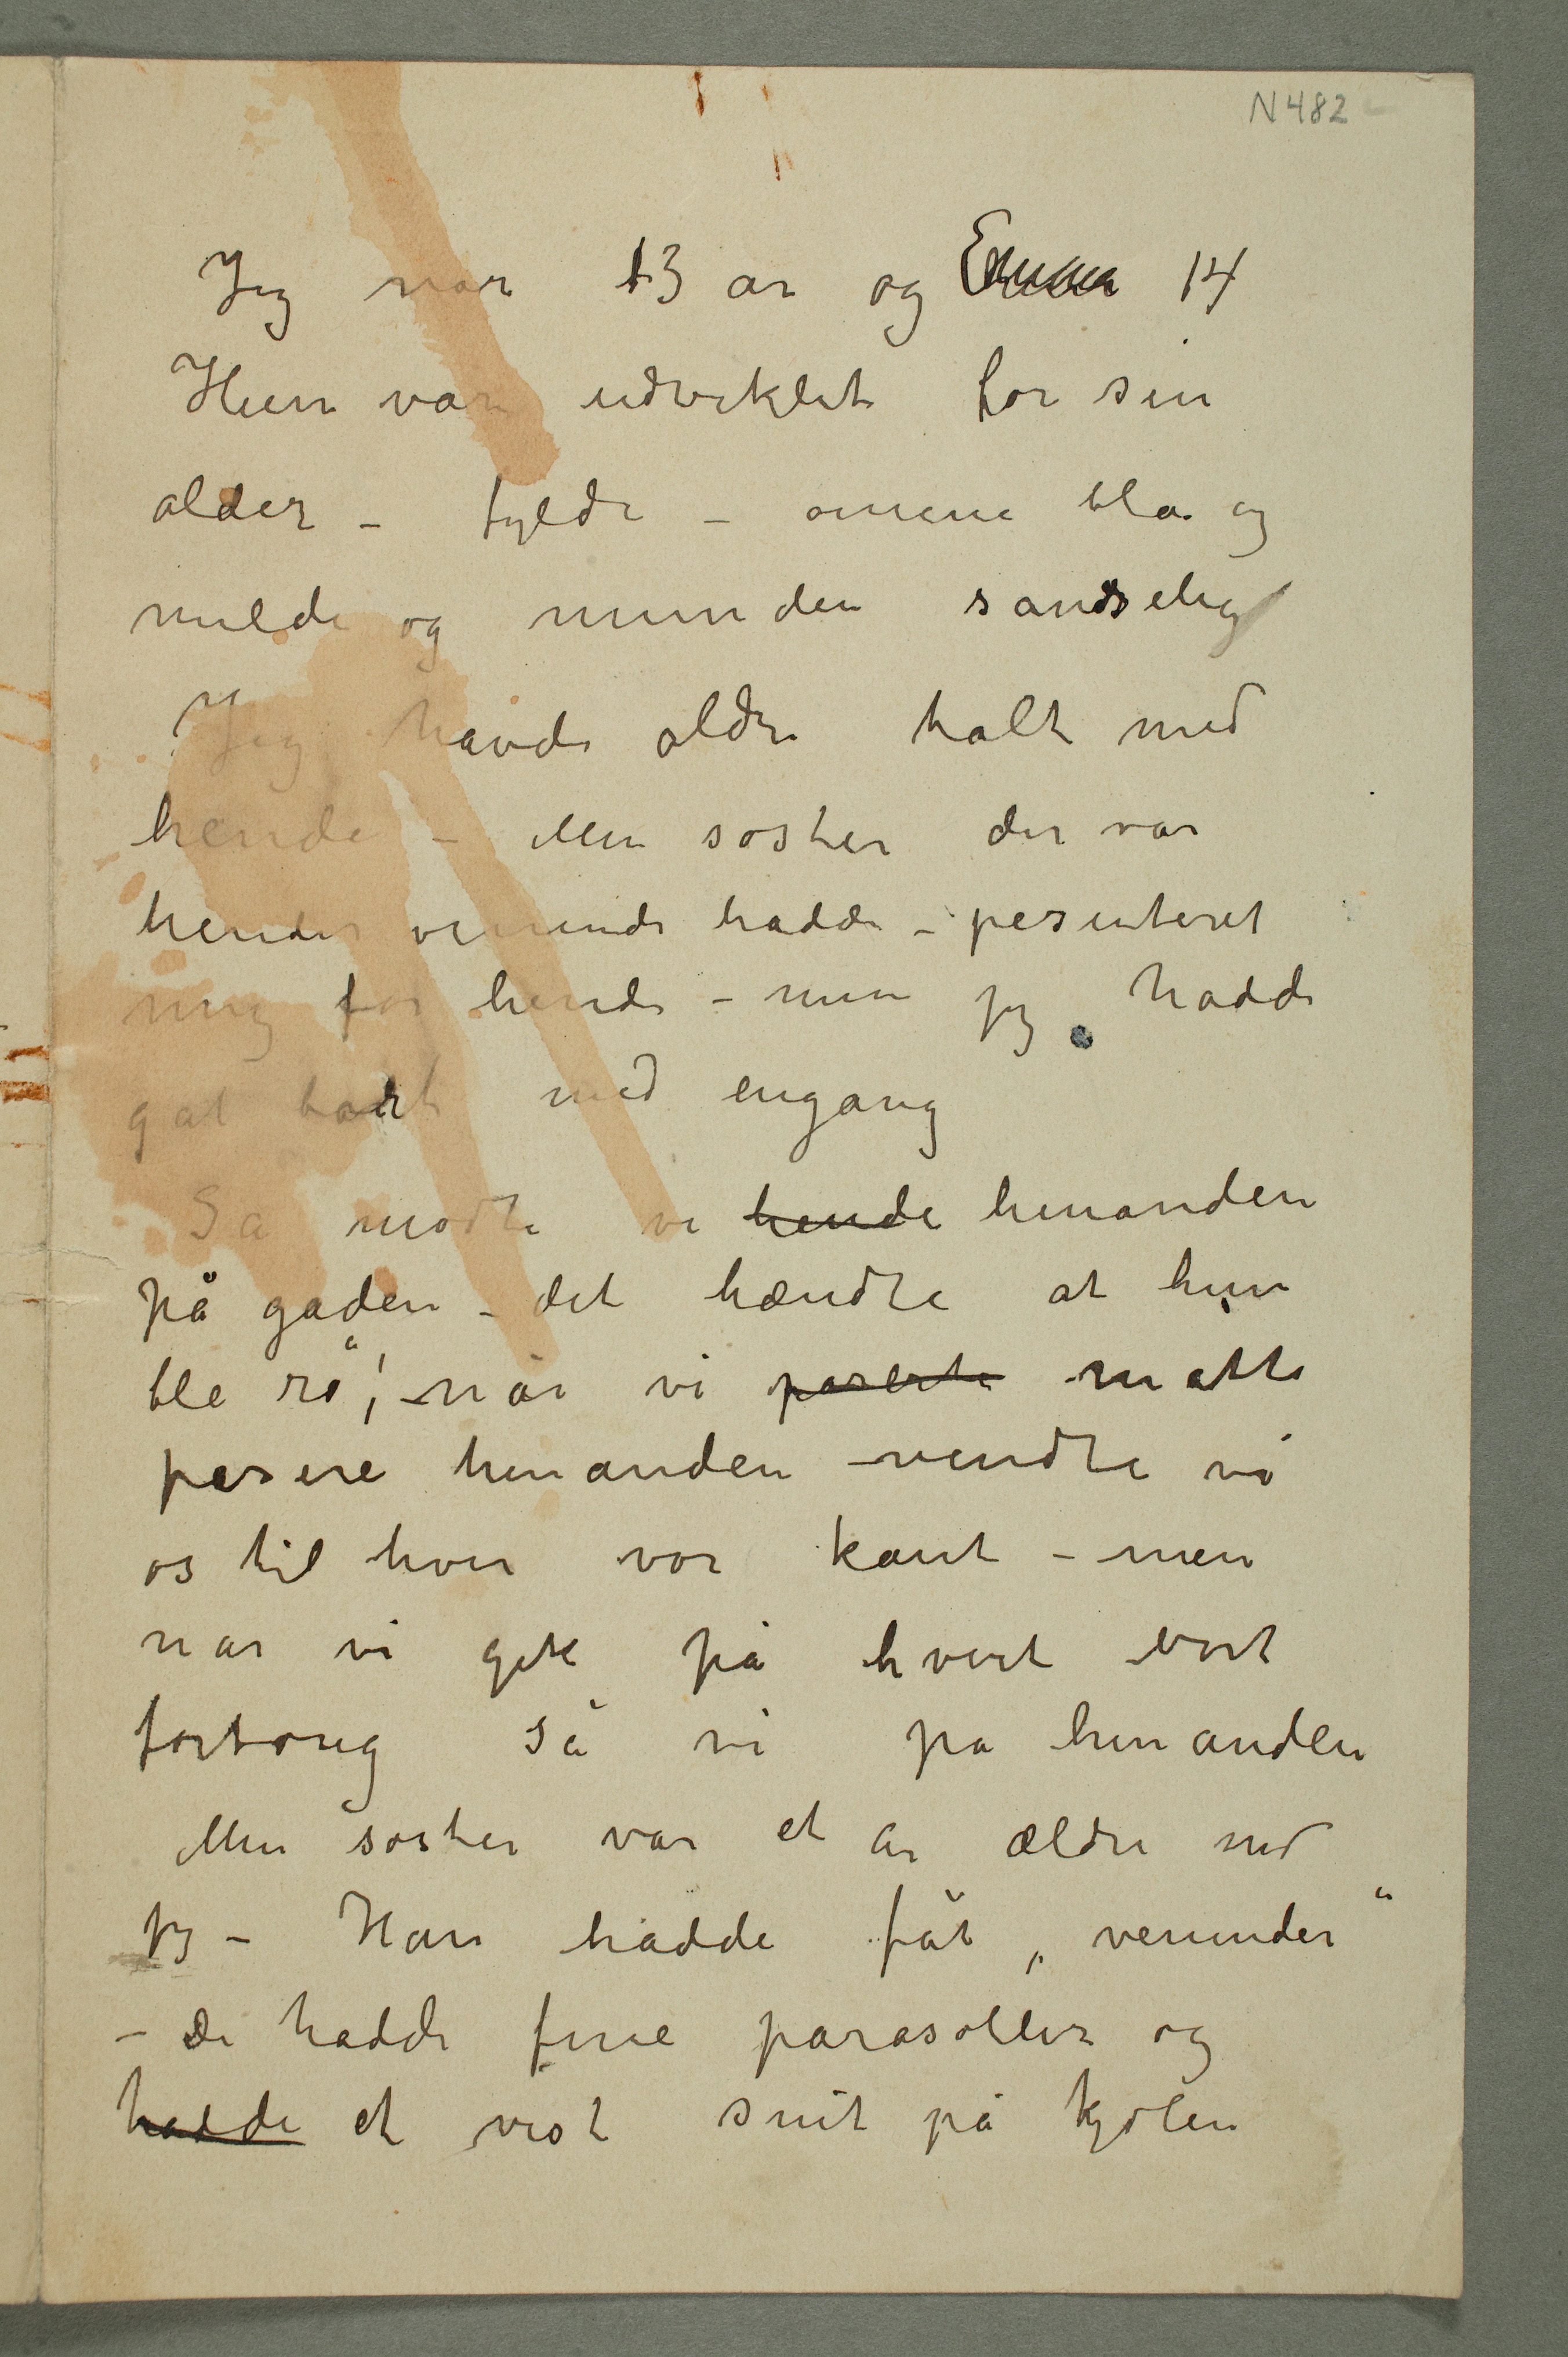 N 482
Jeg var 13 år og Emma 14
Hun var udviklet for sin
alder – fyldi – øinene blå og
milde og munden sandselig
Jeg havde aldri talt med
hende – Min søster der var
hendes veninde hadde – pesenteret
mig for hende – men jeg hadde
gåt bort med engang
Så mødte vi hende hinanden
på gaden – det hændte at hun
ble rø, – når vi paserte måtte
pasere hinanden – vendte vi
os til hver vor kant – men
når vi gik på hvert vort
fortoug så vi på hinanden
Min søster var et år ældre end
jeg – Han hadde fåt „veninder“
– De hadde fine parasoller og
hadde et vist snit på kjolen